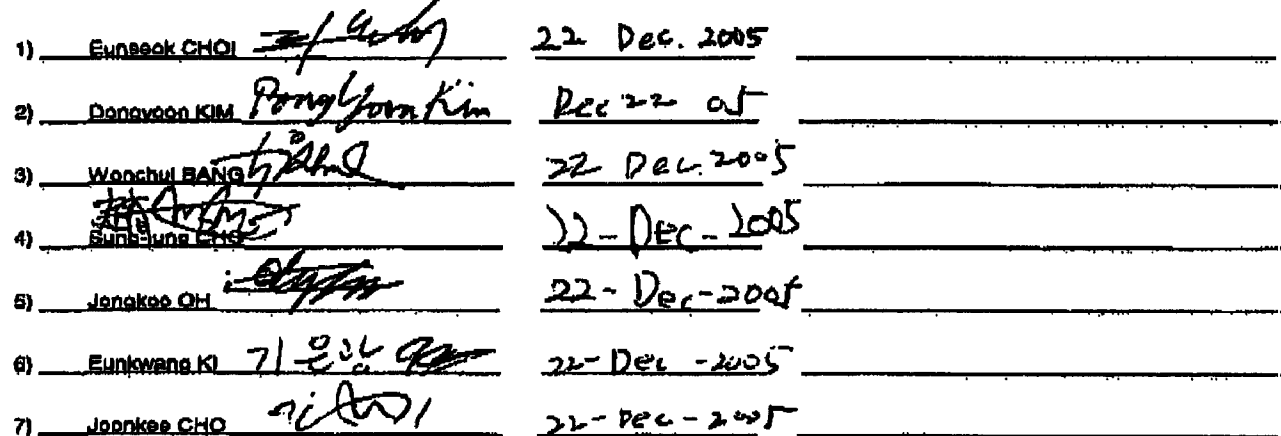 1) Eunseok CHOI 22 Dec. 2005
2) Dongyoon KIM DongYoon Kim Dec 22 05
3) Wonchul BANG 22 Dec. 2005
4) Sung-jung CHO 22-Dec-2005
5) Jongkoo OH 22-Dec-2005
6) Eunkwang KI 기은광 22-Dec-2005
7) Joonkee CHO 22-Dec-2005